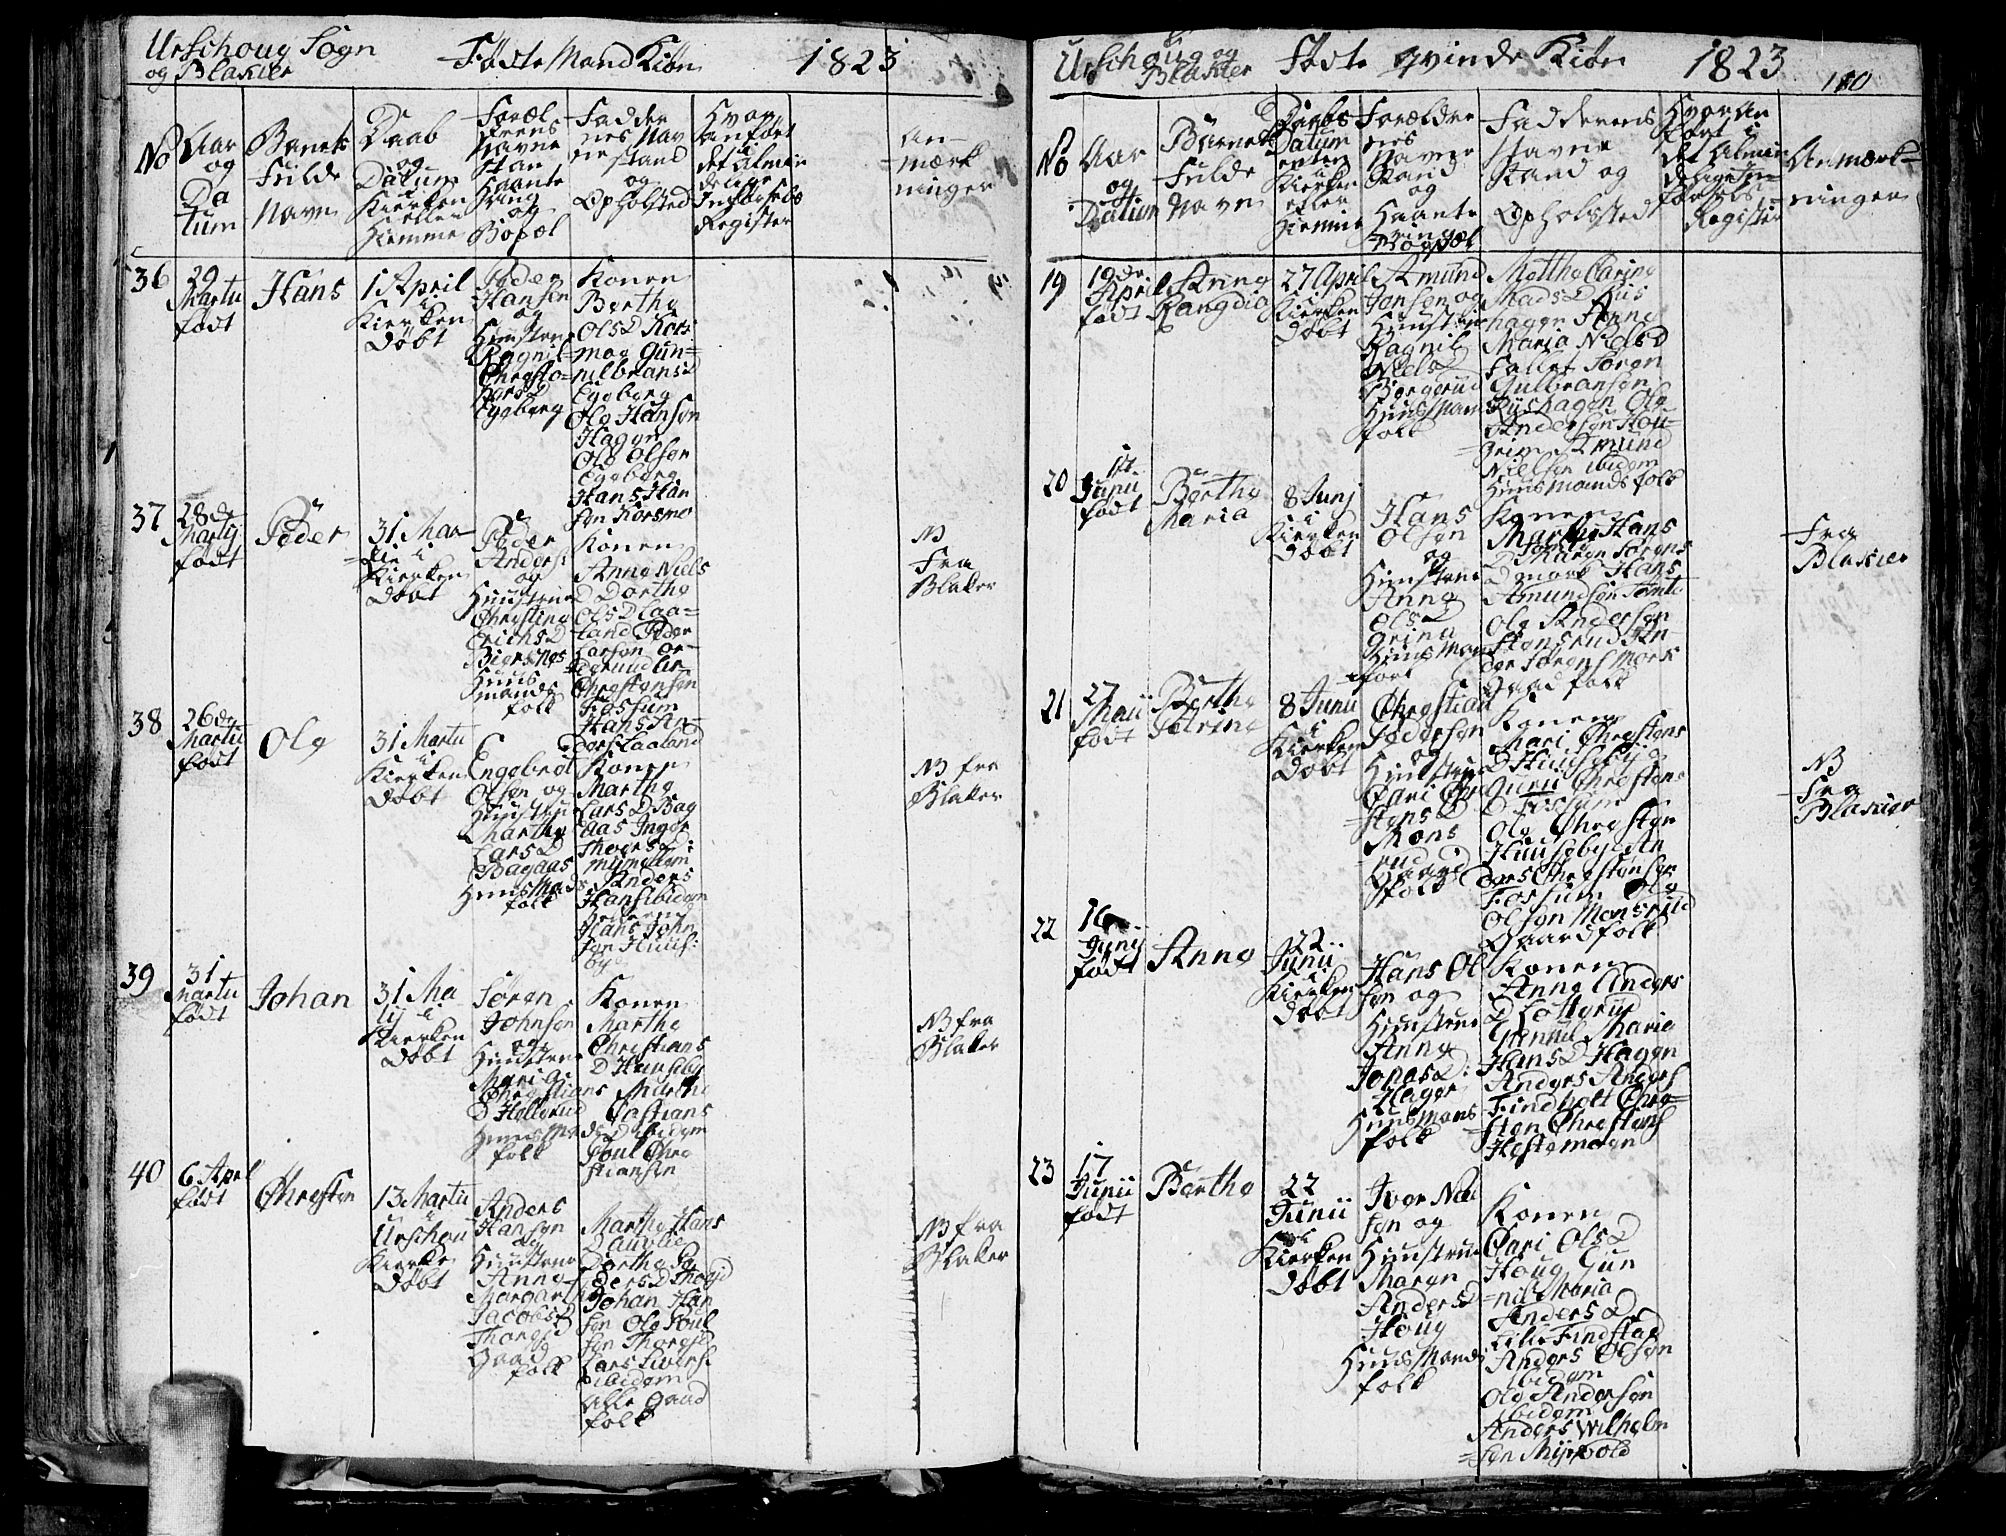 Urschoug Sogn
og Blakier
Födte Mand Kiön
1823
No
Aar
og
Da
tum
Barnets
Fulde
Navn
Daab
og
Datum
Kierken
eller
Hiemme
Foræl
drens
Navne
Stan
Haante
ring
og
Bopæl
Fadder
nes Nav
ne stand
og
Opholsted
Hvor
anfört
i
det Almin
delige
Register
An-
mærk
ninger
36
29
Martii
født
Hans
1 April
i
Kierken
Døbt
Peder
Hansen
og
Huustrue
Ragnil
Christo=
phersD
Egeberg
Konen
Berthe
OlsD Kors
moe Gun=
nilbransD
Egeberg
Ole Hansen
Hagen
Ole Olsen
Egeberg
Hans Han
sen Korsmo
37
28de
Martij
født
Peder
31 Mar
tii i
Kierken
Døbt
Peder
Anders:
og
Huustrue
Christine
ErichsD
Biersnes
Huus
mands
folk
Konen
Anne Niels
D Dorthe
OlsD Laa=
land Peder
Larsen
Christensen
Fossum
Hans An
ders Laaland
NB
Fra
Blaker
38
26de
Martii
født
Ole
31 Martii
i
Kierken
Døbt
Engebret
Olsen og
Huustrue
Marthe
LarsD
Bagaas
Huus Mads
folk
Konen
Marthe
LarsD Bag
aas Inger
Anders
Hans ibidem
Hans John
sen Huus:
bye
NB fra
Blaker
39
31
Martii
født
Johan
31 Ma
tij i
Kierken
Døbt
Sören
Johnsen
og
Huustrue
Mari
Christians
D Hellerud
Huus Mads
folk
Konen
Marthe
Christians
D Huusebye
Marthe
Castians
D ibidem
Poul Chri
stiansen
NB fra
Blaker
40
6 Apri
født
Christen
13 Martii
i
Urschou
Kierke
Døbt
Anders
Hansen
og
Huustrue
Anne
Margarthe
JacobsD
Gaard
folk
Marthe Hans
D
Dorthe Pe
dersD
Johan Han
sen Ole Poul
sen
Lars Iversen
ibidem
Alle Gaard
folk
NB fra
Blaker
Urschoug og
Blakier
Födte qvinde Kiön
1823
180
No
Aar
og
Datum
Barnets
Fulde
Navn
Daabs
Datum
enten
i
Kierken
eller
Hiemme
Forældre
nes
Navne
Stand
og
Haante
ring
Bopæl
Faddernes
Navne
Stand og
Opholsted
Hvor An
fört i
det Almin
delige
Register
Anmærk=
ninger
19
19de
April
født
Anne
Rangdia
27 April
i
Kierken
Døbt
Amund
Jonsen og
Huustrue
Ragnil
NielsD
Borgerud
Huus Mans
folk
Marthe Carine
MadsD Riis
hagen Anne
Maria NielsD
Fallet Sören
Gulbransen
Riishagen Ole
Andersen
Amund
Nielsen ibidem
Huusmands folk
20
1ste
Junii
født
Berthe
Maria
8 Junj
i
Kierken
Døbt
Hans
Olsen
og
Huustrue
Anne
OlsD
Huus Man
folk
Konen
Marthe Hans
D Maren Sörens
D mork Hans
Amundsen Tomte
Ole Andersen
Stensrud An
ders Sörens Mork
Gaard folk
Fra
Blakier
21
27
Maii
født
Berthe
Petrine
8 Junii
i
Kierken
Døbt
Christian
Pedersen
og
Huustrue
Cari Chri
stensD
Mons
rud
Gaard
folk
Konen
Mari Christens
D Huusebye
Guri Christens
D Fossum
Ole Christen
Huusebye An
ders Christensen
Fossum Ole
Olsen Monsrud
Gaardfolk
NB
Fra
Blakier
22
16
Junij
født
Anne
22
Junii
i
Kierken
Døbt
Hans Ol
sen og
Huustrue
Anne
JonasD:
Hagen
Huusmans
folk
Konen
Anne Anders
D Lotterud
Gunnil Marie
HansD Hagen
Anders Anders
Findholt Chri=
sten Christens
Hestemoen
23
17
Junii
født
Berthe
22
Junii
i
Kierken
Døbt
Iver Niel
sen og
Huustrue
Maren
AndersD
Houg
Huus Mands
folk
Konen
Cari OlsD
Houg Gun
nil Maria
AndersD
Lille Findstad
Anders Olsen
ibidem
Ole Andersen
ibidem
Anders Wilhelm
sen Myrvold